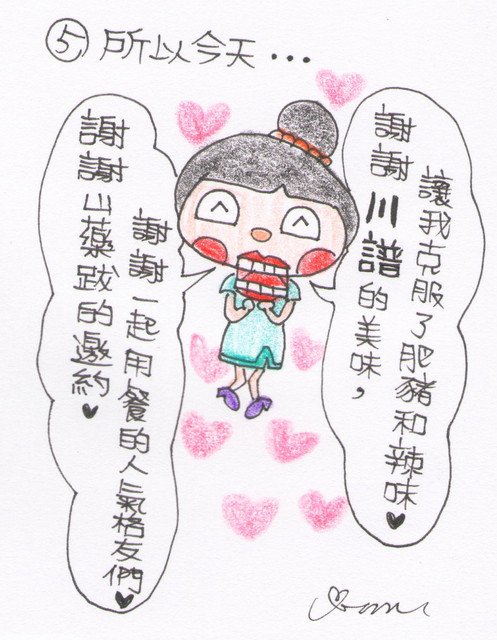 ⑤ 所以今天...
謝謝川譜的美味，
讓我克服了肥豬和辣味♥
謝謝山藥跋的邀約♥
謝謝一起用餐的人氣格友們♥